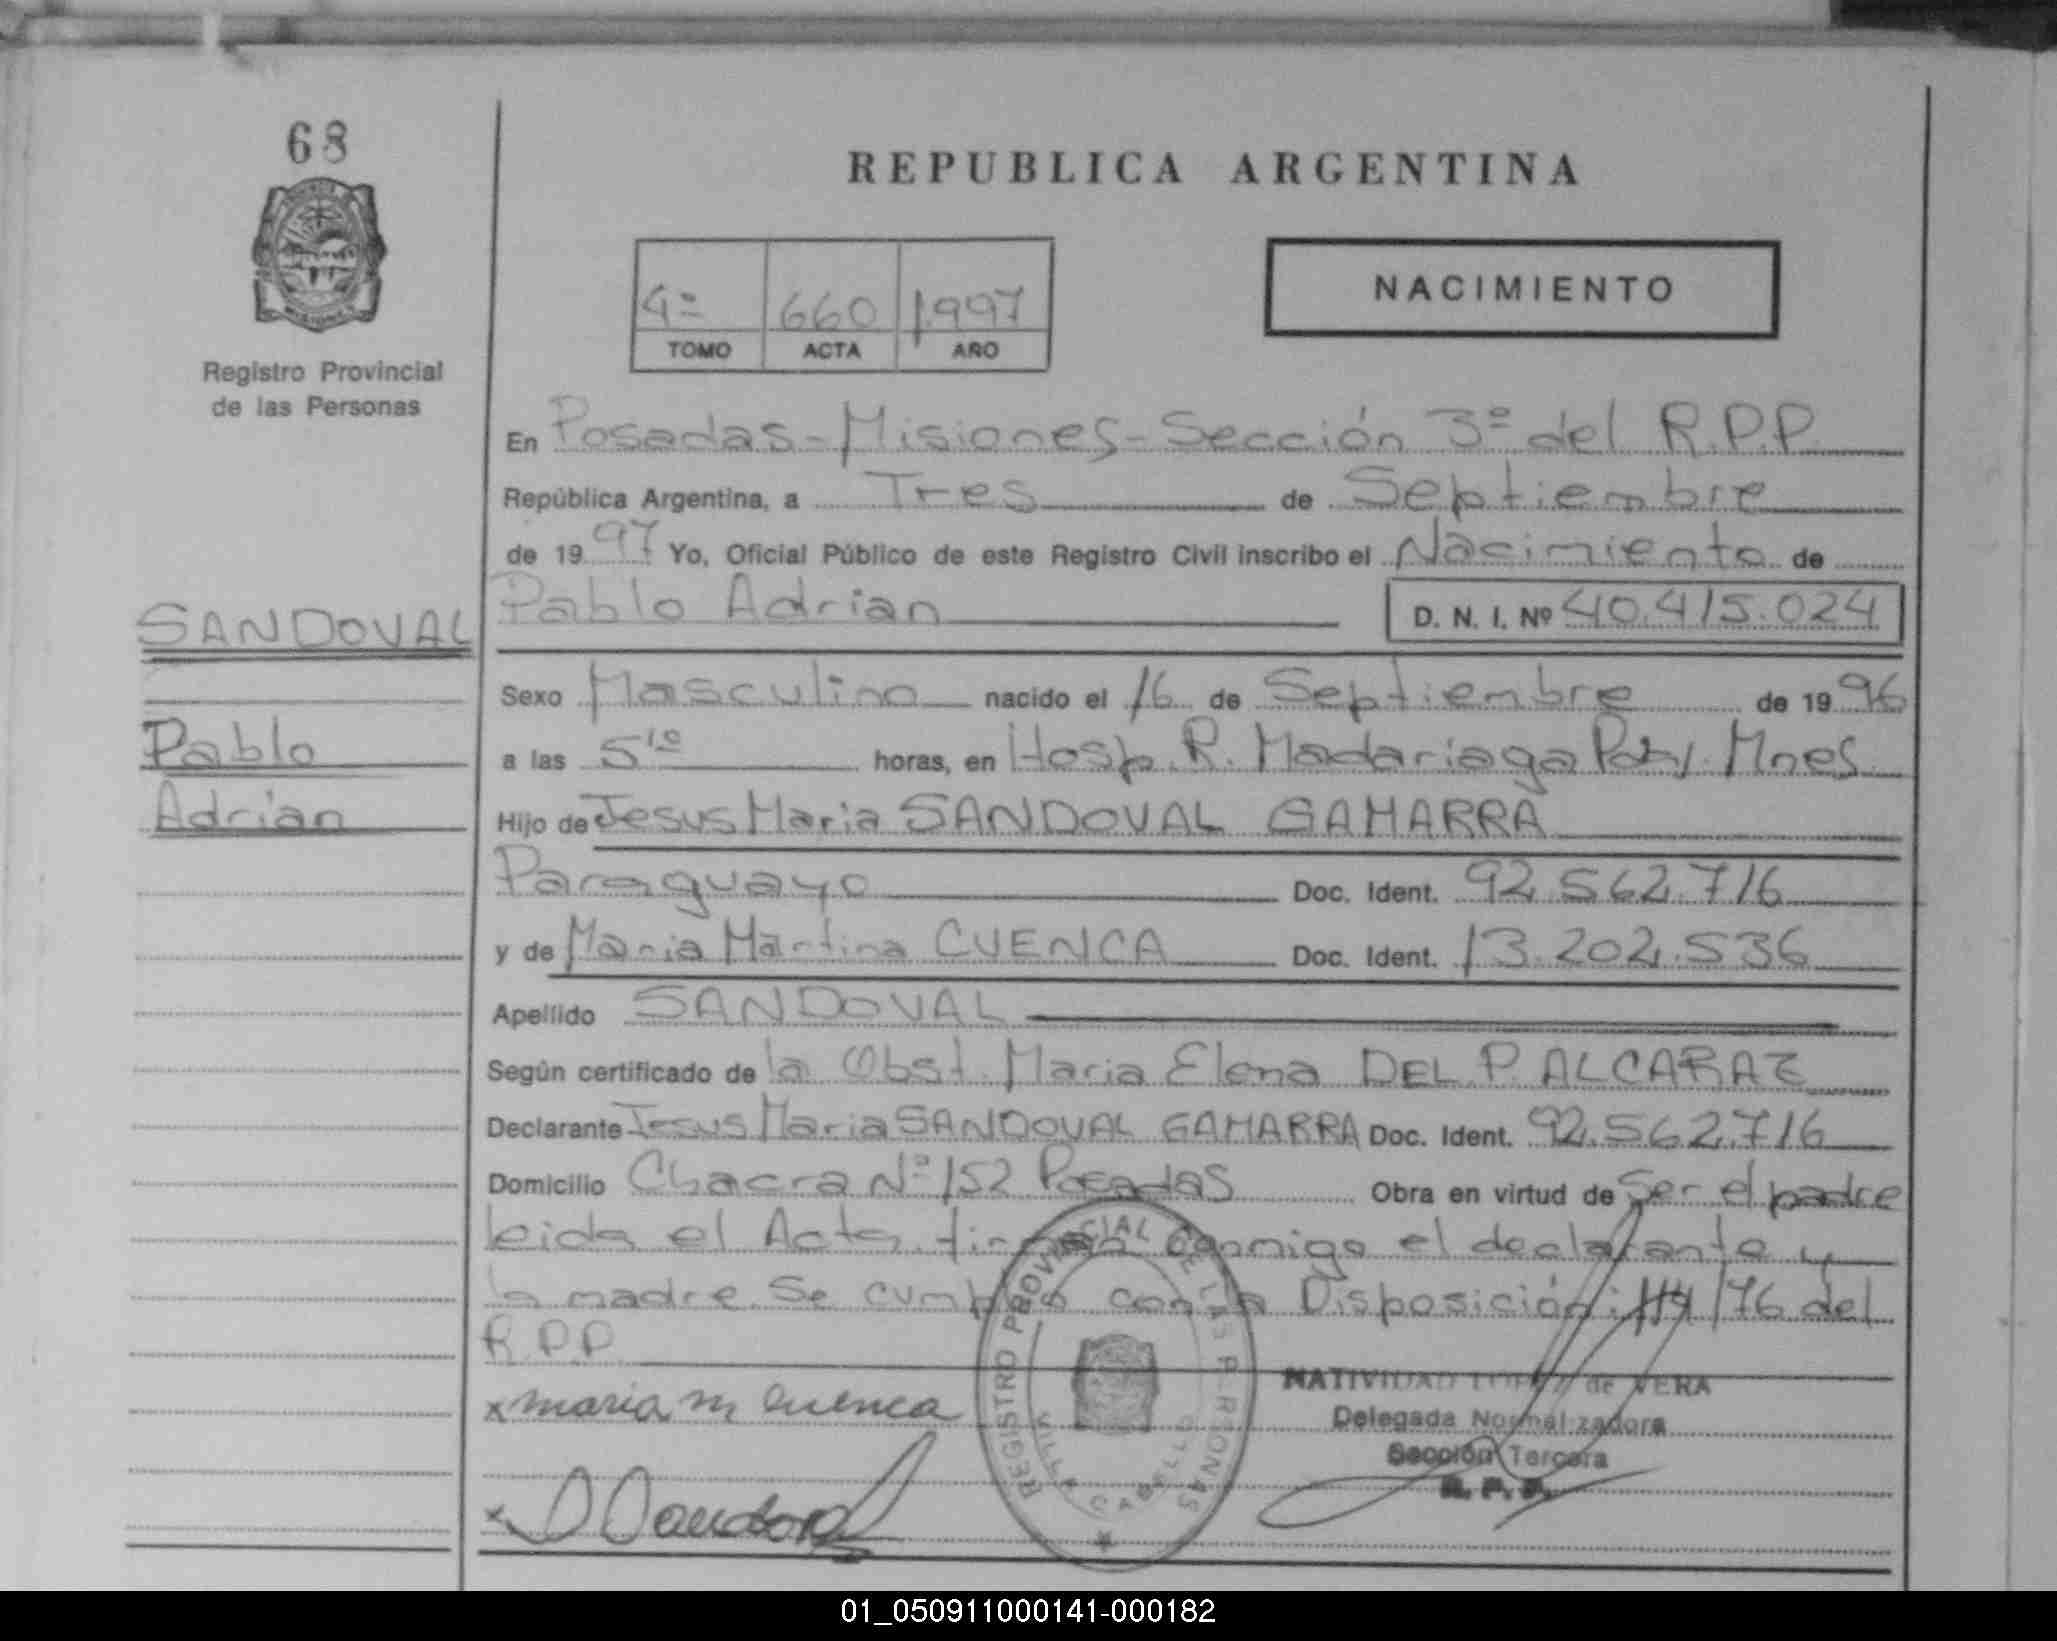 68
REPUBLICA ARGENTINA
NACIMIENTO
4º 660 1997
TOMO ACTA AÑO
Registro Provincial
de las Personas
En Posadas - Misiones - Sección 3º del R.P.P.
República Argentina, a Tres de Septiembre
de 1997 Yo, Oficial Público de este Registro Civil inscribo el Nacimiento de
Pablo Adrian D. N. I. Nº 40.415.024
SANDOVAL
Pablo
Adrian
Sexo Masculino nacido el 16 de Septiembre de 1996
a las 5¹º horas, en Hosp. R. Madariaga Pdas. Mnes
Hijo de Jesus Maria SANDOVAL GAMARRA
Paraguayo Doc. Ident. 92.562.716
y de Maria Martina CUENCA Doc. Ident. 13.202.536
Apellido SANDOVAL
Según certificado de la Obst. Maria Elena DEL P. ALCARAZ
Declarante Jesus Maria SANDOVAL GAMARRA Doc. Ident. 92.562.716
Domicilio Chacra Nº 152 Posadas Obra en virtud de Ser el padre
leida el Acta firman conmigo el declarante y
la madre. Se cumplio con la Disposición: /76 del
R.P.P.
x maria m cuenca
NATIVIDAD LOPEZ de VERA
Delegada Normalizadora
Sección Tercera
R. P. P.
x Sandoval
REGISTRO PROVINCIAL DE LAS PERSONAS
VILLA CABELLO
01_050911000141-000182